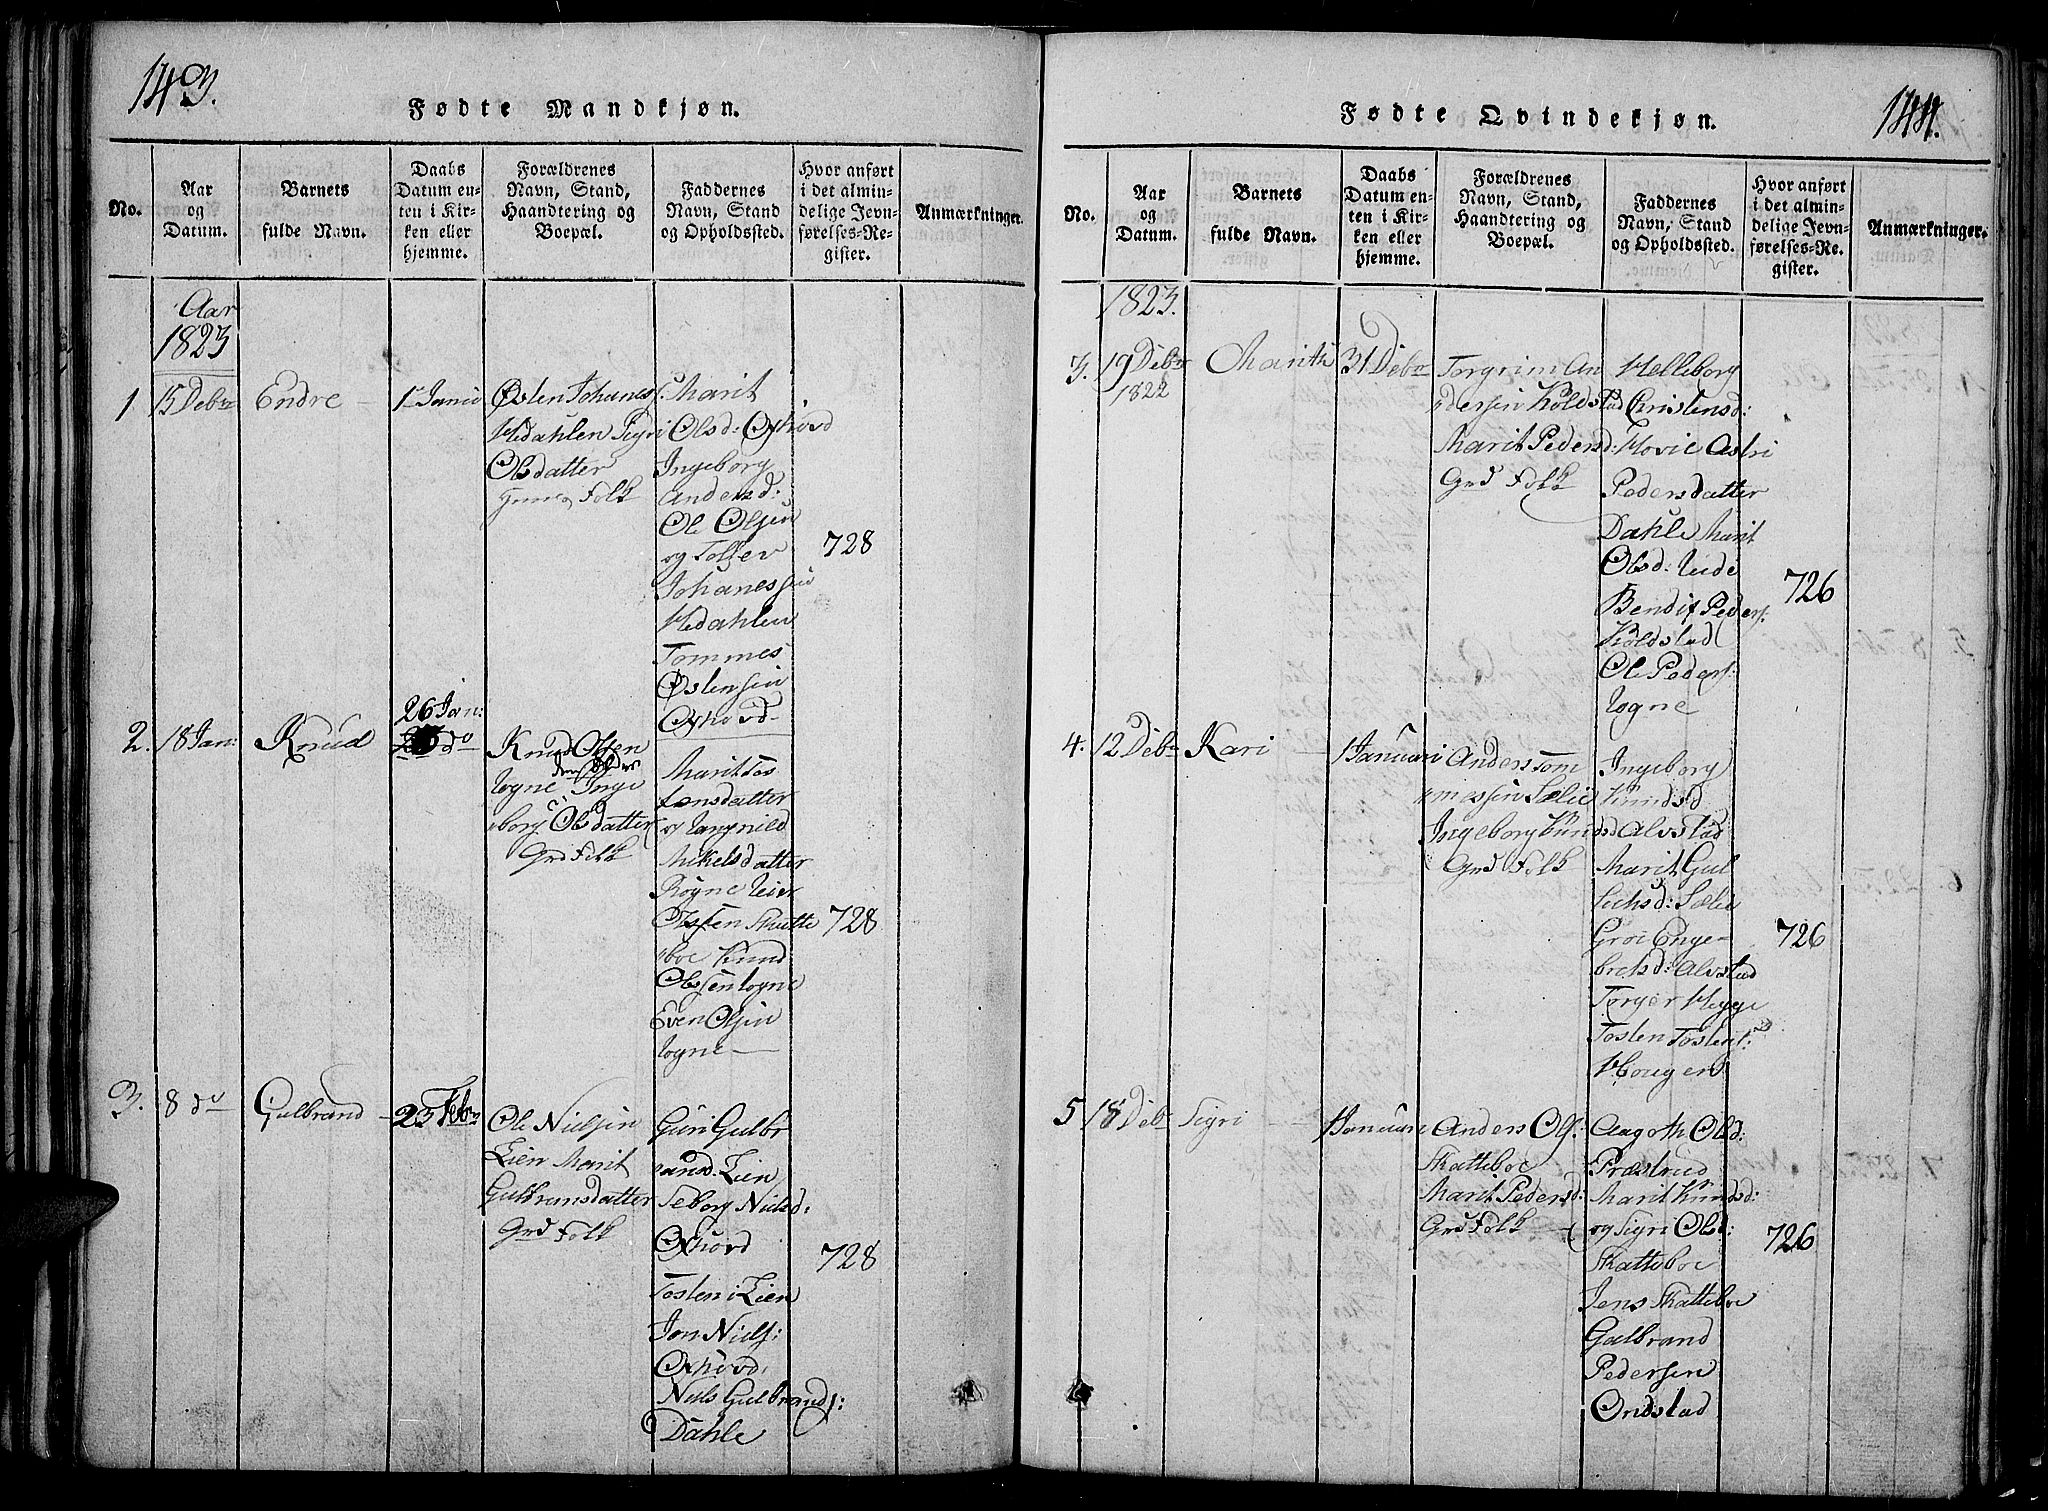 143.
Fødte Mandkjøn.
No.
Aar
og
Datum.
Barnets
fulde Navn.
Daabs
Datum en-
ten i Kir-
ken eller
hjemme.
Forældrenes
Navn, Stand,
Haandtering og
Boepæl.
Faddernes
Navn, Stand
og Opholdssted.
Hvor anført
i det almin-
delige Jevn-
førelses-Re-
gister.
Anmærkninger.
Aar
1823
1
15 Debr
Endre
1 Janu
Østen Johanes
Hedahlen Sigri
Olsdatter
Folk
Marit
Olsd: Oxhovd
Ingeborg
Andersd:
Ole Olsen
og Tolfer
Johanessen
Hedahlen
Tommes
Østensen
Oxhovd
728
2.
18 Jan:
Knud
26 Jan:
do
Knud Olsen
Rogne Inge
borg Olsdatter
Grd Folk
Marit Tos
tensdatter
og Rangnild
Mikelsdatter
Rogne
Skatte
boe Knud
Olssen Rogne
Even Olsen
Rogne
728
3.
8 do
Gulbrand
23 Febr
Ole Nielsen
Lien Marit
Gulbransdatter
Grd Folk
Guri Gulb
ransd. Lien
Seborg Nielsd:
Oxhovd
Tosten i Lien
Jon Niels:
Oxhovd.
Niels Gulbrands:
Dahle
728
144.
Fødte Qvindekjøn.
No.
Aar
og
Datum.
Barnets
fulde Navn.
Daabs
Datum en-
ten i Kir-
ken eller
hjemme.
Forældrenes
Navn, Stand,
Haandtering og
Boepæl.
Faddernes
Navn, Stand
og Opholdssted.
Hvor anført
i det almin-
delige Jevn-
førelses-Re-
gister.
Anmærkninger.
1823.
3.
19 Debr
1822
Marith
31 Debr
Torgrim An
dersen Koldstad
Marit Pedersd:
Grd Folk
Helleborg
Christensd:
Hovie Astri
Pedersdatter
Dahle Marit
Olsd:
Bendit Peders:
Koldstad
Ole Peders:
Rogne
726
4.
12 Debr
Kari
1 Januari
Anders Tom
messen Sælie
Ingeborg Knudsd
Grd Folk
Ingeborg
Knudsd
Alvstad
Marit Gul
Sælie
Groe Enge-
bretsd: Alvstad
Torger Hegge
Tosten Tostens:
Hougen
726
5
18 Debr
Sigri
1 Januari
Anders Ols:
Skatteboe
Marit Pedersd:
Grd Folk
Aagoth Olsd:
Præstrud
Marit Knudsd:
og Sigri Olsd:
Skatteboe
Jens Skatteboe
Gulbrand
Pedersen
Onstad
726